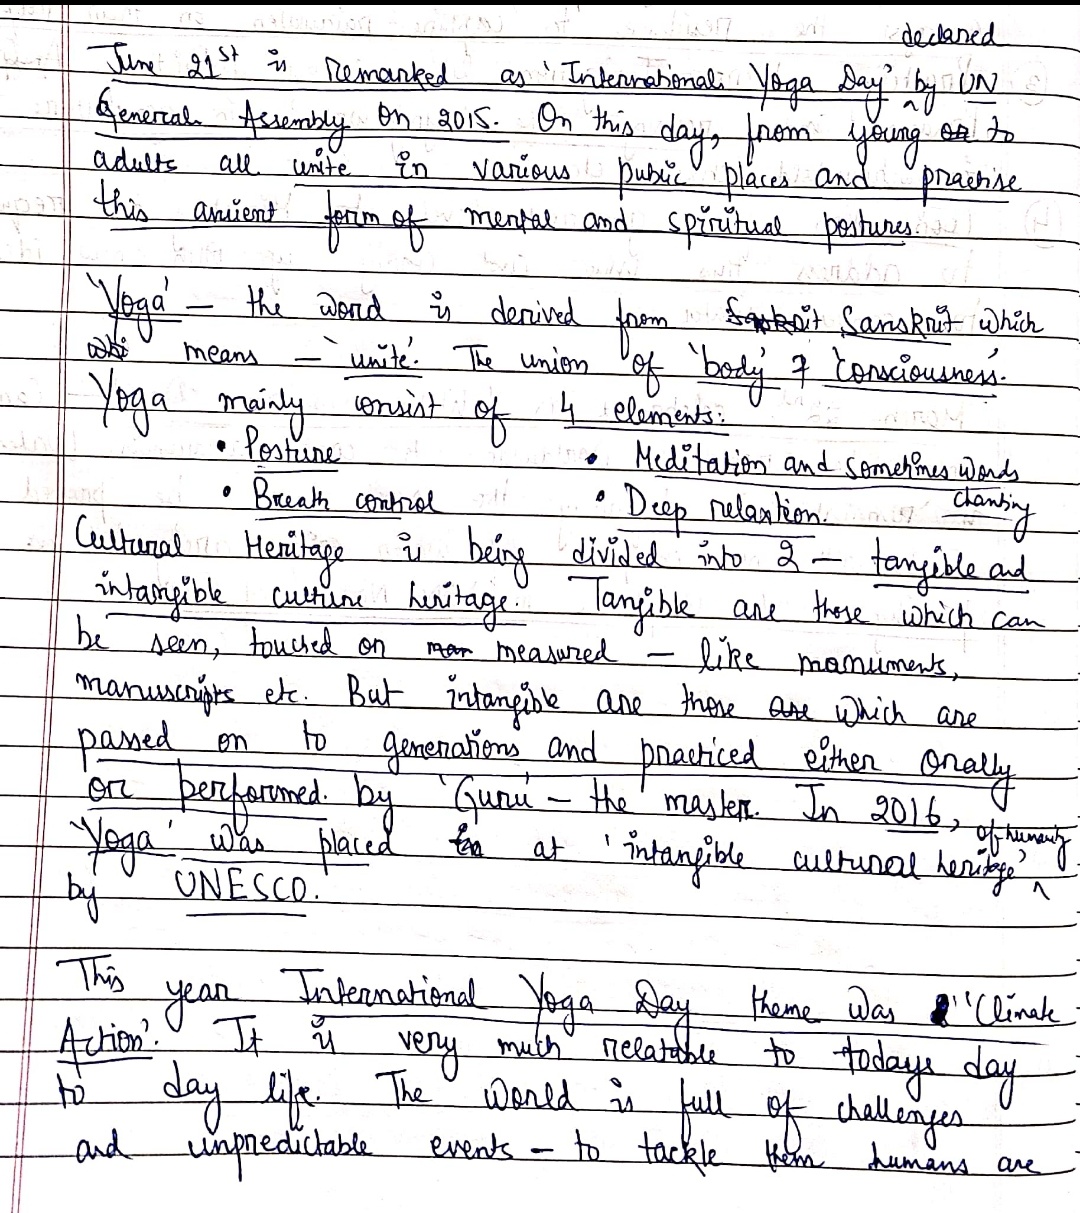 declared
June 21st is remarked as 'International Yoga Day' ^ by UN
General Assembly on 2015. On this day, from young or to
adults all unite in various public places and practise
this ancient form of mental and spiritual postures.
'Yoga' – the word is derived from Sanskrit which
means – 'unite'. The union of 'body' & 'consciousness'.
Yoga mainly consist of 4 elements:
• Posture • Meditation and sometimes words
• Breath control • Deep relaxtion. chanting
Cultural Heritage is being divided into 2 – tangible and
intangible culture heritage. Tangible are those which can
be seen, touched or measured – like manuments,
manuscripts etc. But intangible are those are which are
passed on to generations and practiced either orally
or performed. by 'Guru' – the master. In 2016,
of humanity
'Yoga' was placed at 'intangible cultural heritage' ^
by UNESCO.
This year International Yoga Day theme was "Climate
Action'. It is very much relatable to todays day
to day life. The world is full of challenges
and unpredictable events – to tackle them humans are